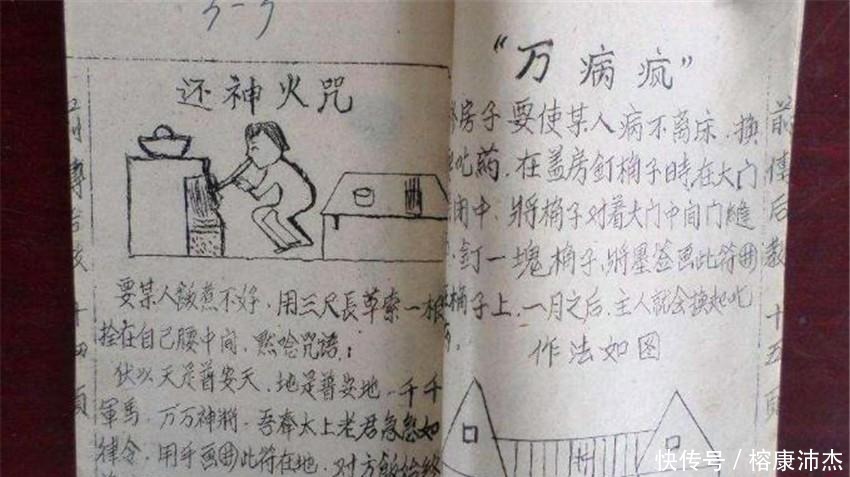 还神火咒
要某人飯煮不好，用三尺長草索一根
拴在自己腰中间，默唸咒语：
伏以天是普安天，地是普安地，千千
軍馬，万万神将，吾奉太上老君急急如
律令，用手画此符在地，对方飯始终
十四页
"万病疯"
房子要使某人病不离床，换
吃药，在盖房釘桷子時，在大门
闭中，将桷子对着大门中间门缝
釘一塊桷子，将墨签画此符
桷子上，一月之后，主人就会换起吃
作法如图
前传后教
十五页
快传号／榕康沛杰